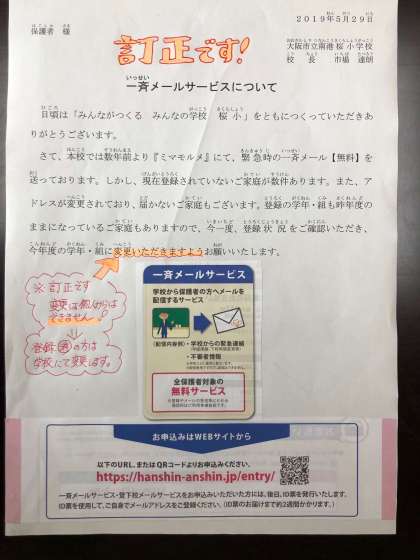 保護者 様
2019年5月29日
大阪市立南港桜小学校
校長 市場 達朗
訂正です!
一斉メールサービスについて
日頃は「みんながつくる みんなの学校 桜小」をともにつくっていただきあ
りがとうございます。
さて、本校では数年前より『ミマモルメ』にて、緊急時の一斉メール【無料】を
送っております。しかし、現在登録されていないご家庭が数件あります。また、ア
ドレスが変更されており、届かないご家庭もございます。登録の学年・組も昨年度の
ままになっているご家庭もありますので、今一度、登録状況をご確認いただき、
今年度の学年・組に変更いただきますようお願いいたします。
※訂正です
できません!
登録済の方は
学校にて変更します。
一斉メールサービス
学校から保護者の方へメールを
配信するサービス
(配信内容例)・学校からの緊急連絡
・不審者情報
全保護者対象の
無料サービス
お申込みはWEBサイトから
以下のURL、またはQRコードよりお申込みください。
https://hanshin-anshin.jp/entry/
一斉メールサービス・登下校メールサービスをお申込みいただいた方には、後日、ID票を発行いたします。
ID票を使用して、ご自身でメールアドレスをご登録ください。(ID票のお届けまで約2週間かかります。)